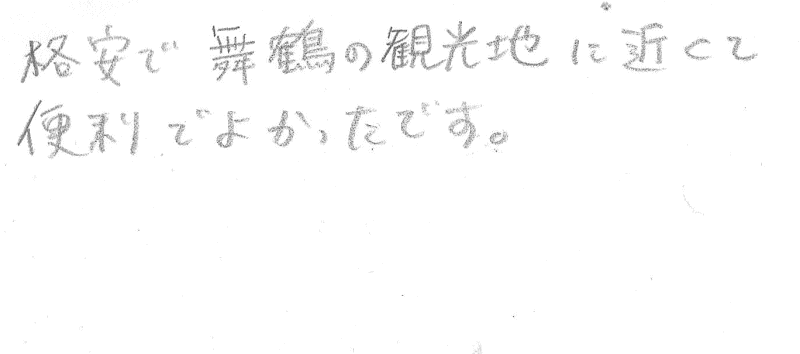 格安で舞鶴の観光地に近くて
便利でよかったです。